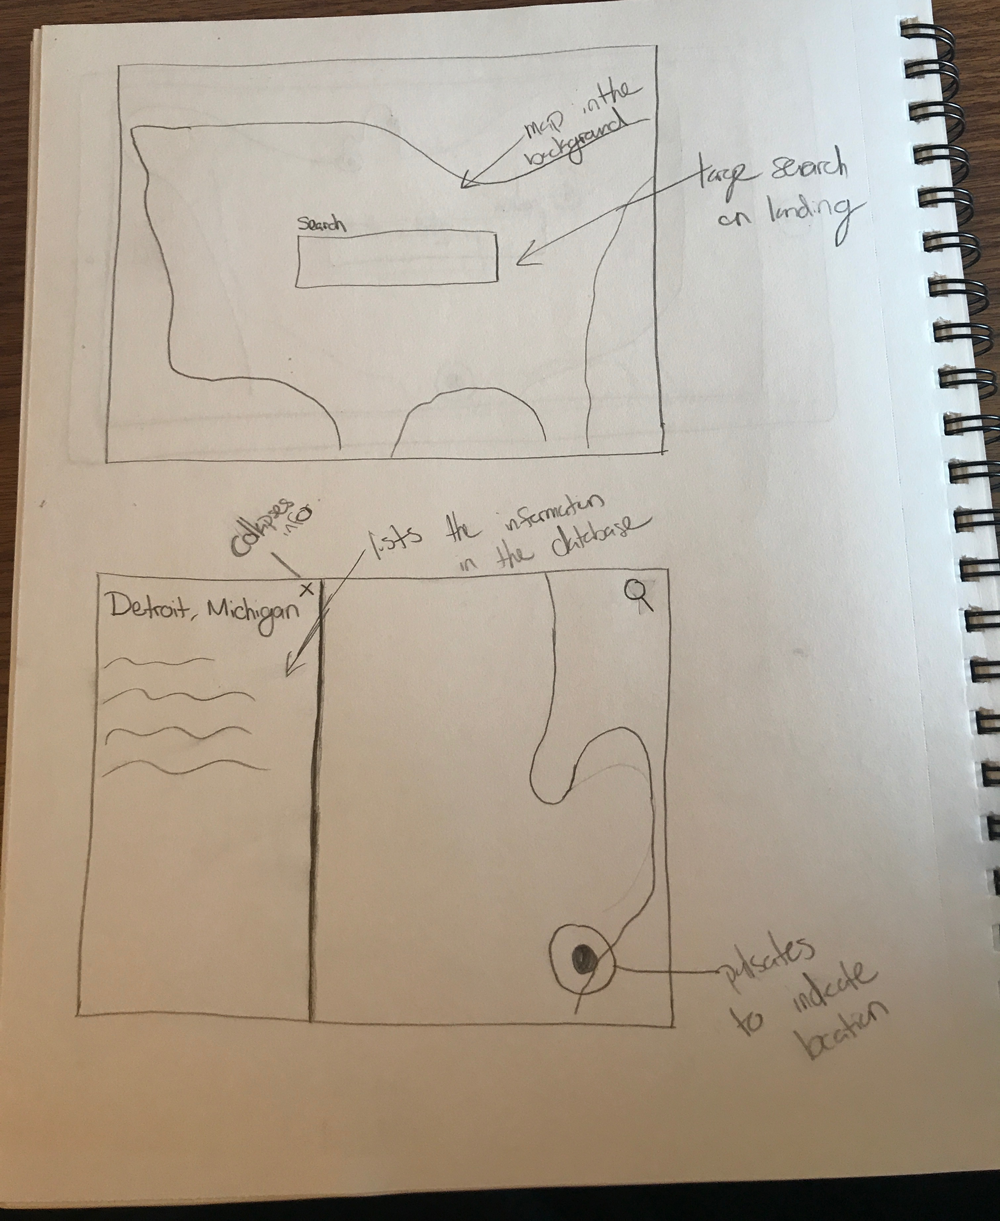 map in the
background
large search
on landing
Search
collapses
info
lists the information
in the database
x
Detroit, Michigan
pulsates
to indicate
location